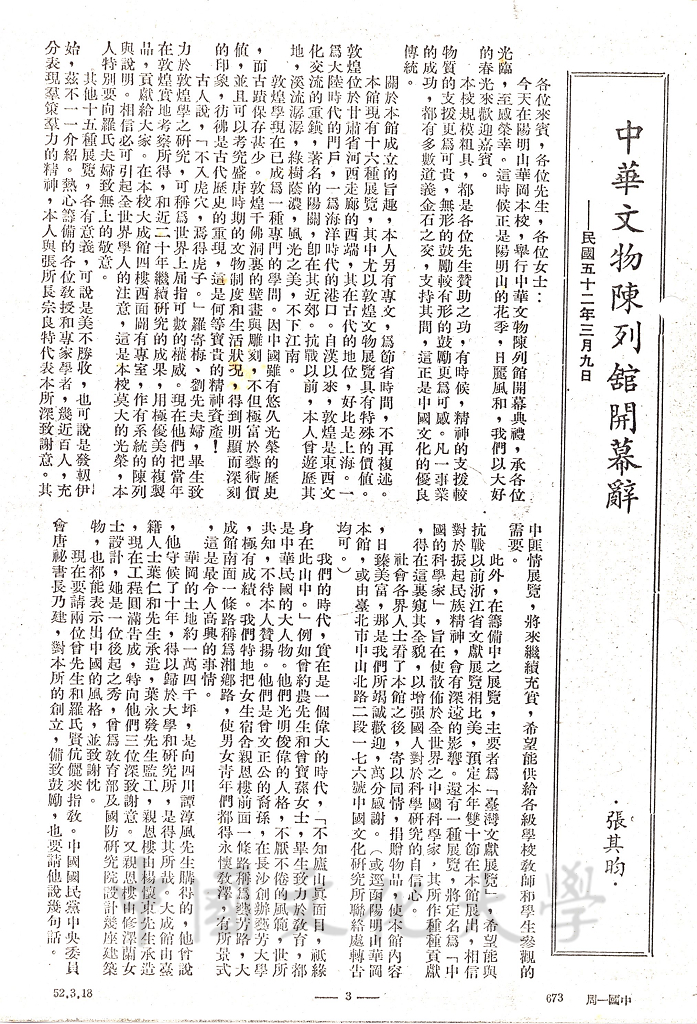 中華文物陳列舘開幕辭
——民國五十二年三月九日
·張其昀·
各位來賓，各位先生，各位女士：
今天在陽明山華岡本校，舉行中華文物陳列館開幕典禮，承各位
光臨，至感榮幸。這時候正是陽明山的花季，日麗風和，我們以大好
的春光來歡迎嘉賓。
本校規模粗具，都是各位先生贊助之功，有時候，精神的支援較
物質的支援更為可貴，無形的鼓勵較有形的鼓勵更爲可感。凡一事業
的成功，都有多數道義金石之交，支持其間，這正是中國文化的優良
傳統。
關於本館成立的旨趣，本人另有專文，爲節省時間，不再複述。
本館現有十六種展覽，其中尤以敦煌文物展覽具有特殊的價值。
敦煌位於甘肅省河西走廊的西端，其在古代的地位，好比是上海。一
爲大陸時代的門戶，一爲海洋時代的港口。自漢以來，敦煌是東西文
化交流的重鎮，著名的陽關，卽在其近郊。抗戰以前，本人曾遊歷其
地，溪流潺潺，綠樹蔭濃，風光之美，不下江南。
敦煌學現在已成爲一種專門的學問。因中國雖有悠久光榮的歷史
，而古蹟保存甚少。敦煌千佛洞裏的壁畫與雕刻，不但極富於藝術價
值，並且可以考究盛唐時期的文物制度和生活狀况，得到明顯而深刻
的印象，彷彿是古代歷史的重現，這是何等寶貴的精神資產！
古人說，「不入虎穴，焉得虎子。」羅寄梅、劉先夫婦，畢生致
力於敦煌學之研究，可稱爲世界上屈指可數的權威。現在他們把當年
在敦煌實地考察所得，和近二十年繼續研究的成果，用極優美的複製
品，貢獻給大家。在本校大成館四樓西面闢有專室，作有系統的陳列
與說明。相信必可引起全世界學人的注意，這是本校莫大的光榮，本
人特別要向羅氏夫婦致無上的敬意。
其他十五種展覽，各有意義，可說是美不勝收，也可說是發軔伊
始，茲不一一介紹。熱心籌備的各位敎授和專家學者，幾近百人，充
分表現羣策羣力的精神，本人與張所長宗良特代表本所深致謝意。其
中匪情展覽，將來繼續充實，希望能供給各級學校敎師和學生參觀的
需要。
此外，在籌備中之展覽，主要者爲「臺灣文獻展覽」，希望能與
抗戰以前浙江省文獻展覽相比美，預定本年雙十節在本館展出，相信
對於振起民族精神，會有深遠的影響。還有一種展覽，將定名爲「中
國的科學家」，旨在使散佈於全世界之中國科學家，其所作種種貢獻
，得在這裏窺其全貌，以增強國人對於科學研究的自信心。
社會各界人士看了本館之後，寄以同情，捐贈物品，使本館內容
，日臻美富，那是我們所竭誠歡迎，萬分感謝。（或逕函陽明山華岡
本館，或由臺北市中山北路二段一七六號中國文化研究所聯絡處轉告
均可。）
我們的時代，實在是一個偉大的時代，「不知廬山眞面目，祇緣
身在此山中。」例如曾約農先生和曾寶蓀女士，畢生致力於敎育，都
是中華民國的大人物。他們光明俊偉的人格，不厭不倦的風範，世所
共知，不待本人贊揚。他們是曾文正公的裔孫，在長沙創辦藝芳大學
，極有成績。我們特地把女生宿舍親恩樓前面一條路稱爲藝芳路，大
成館南面一條路稱爲湘鄉路，使男女靑年們都得永懷敎澤，有所景式
，這是最令人高興的事情。
華岡的土地約一萬四千坪，是向四川譚淳風先生購得的，他曾說
，他守候了十年，得以歸於大學和研究所，是得其所哉。大成館由臺
籍人士葉仁和先生承造，葉永發先生監工，親恩樓由楊懷東先生承造
，現在工程圓滿告成，特向他們三位深致謝意。又親恩樓由修澤蘭女
士設計，她是一位後起之秀，曾爲敎育部及國防研究院設計幾座建築
物，也都能表示出中國的風格，並致謝忱。
現在要請兩位曾先生和羅氏賢伉儷來指敎。中國國民黨中央委員
會唐秘書長乃建，對本所的創立，備致鼓勵，也要請他說幾句話。
52.3.18
— 3 —
673
中國一周
中國文化大學